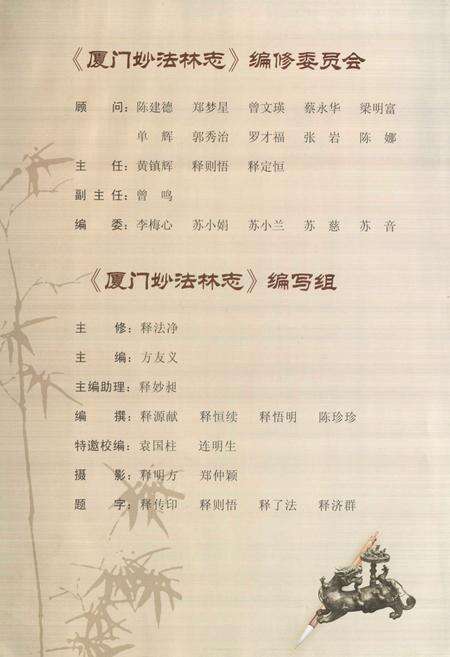 《厦门妙法林志》编修委员会
顾 问：陈建德 郑梦星 曾文瑛 蔡永华 梁明富
单 辉 郭秀治 罗才福 张 岩 陈 娜
主 任：黄镇辉 释则悟 释定恒
副主任：曾 鸣
编 委：李梅心 苏小娟 苏小兰 苏 慈 苏 音
《厦门妙法林志》编写组
主 修：释法净
主 编：方友义
主编助理：释妙昶
编 撰：释源献 释恒续 释悟明 陈珍珍
特邀校编：袁国柱 连明生
摄 影：释明方 郑仲颖
题 字：释传印 释则悟 释了法 释济群